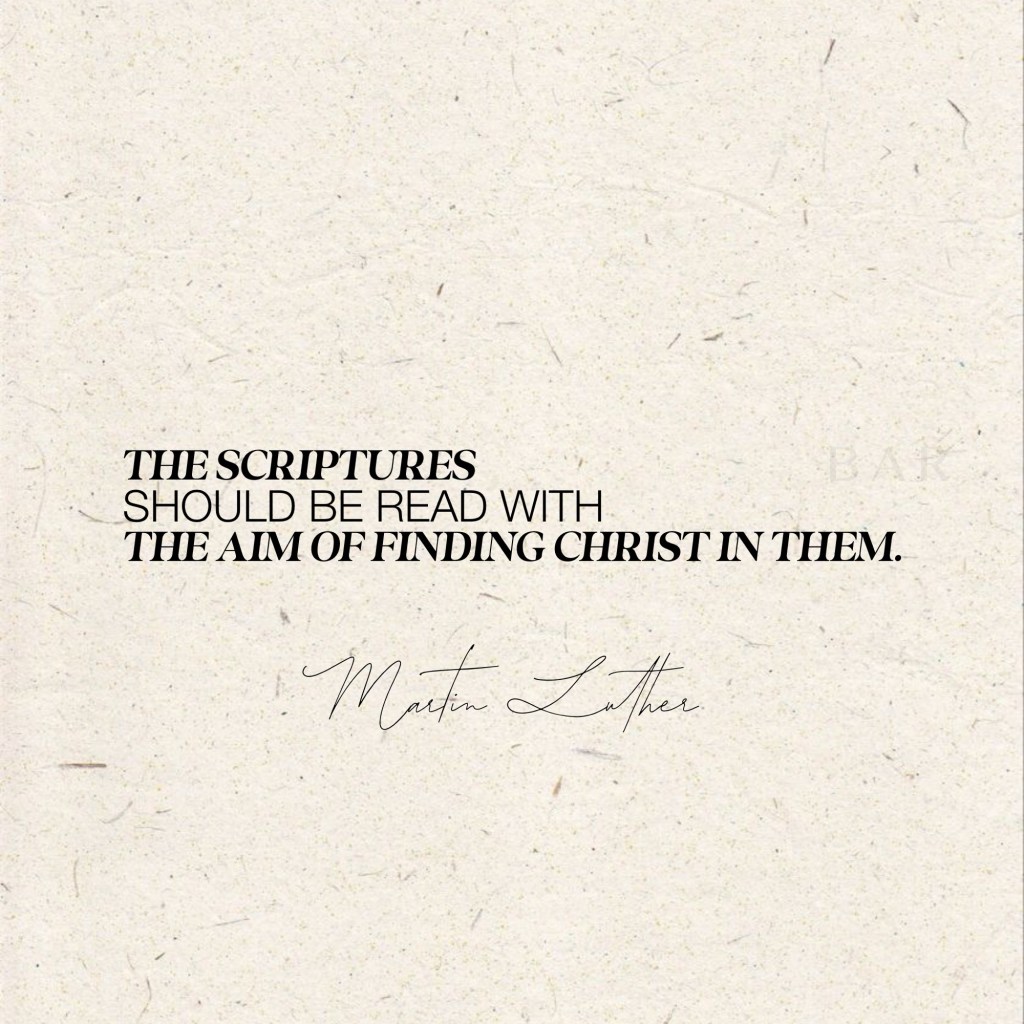 THE SCRIPTURES
SHOULD BE READ WITH
THE AIM OF FINDING CHRIST IN THEM.
Martin Luther